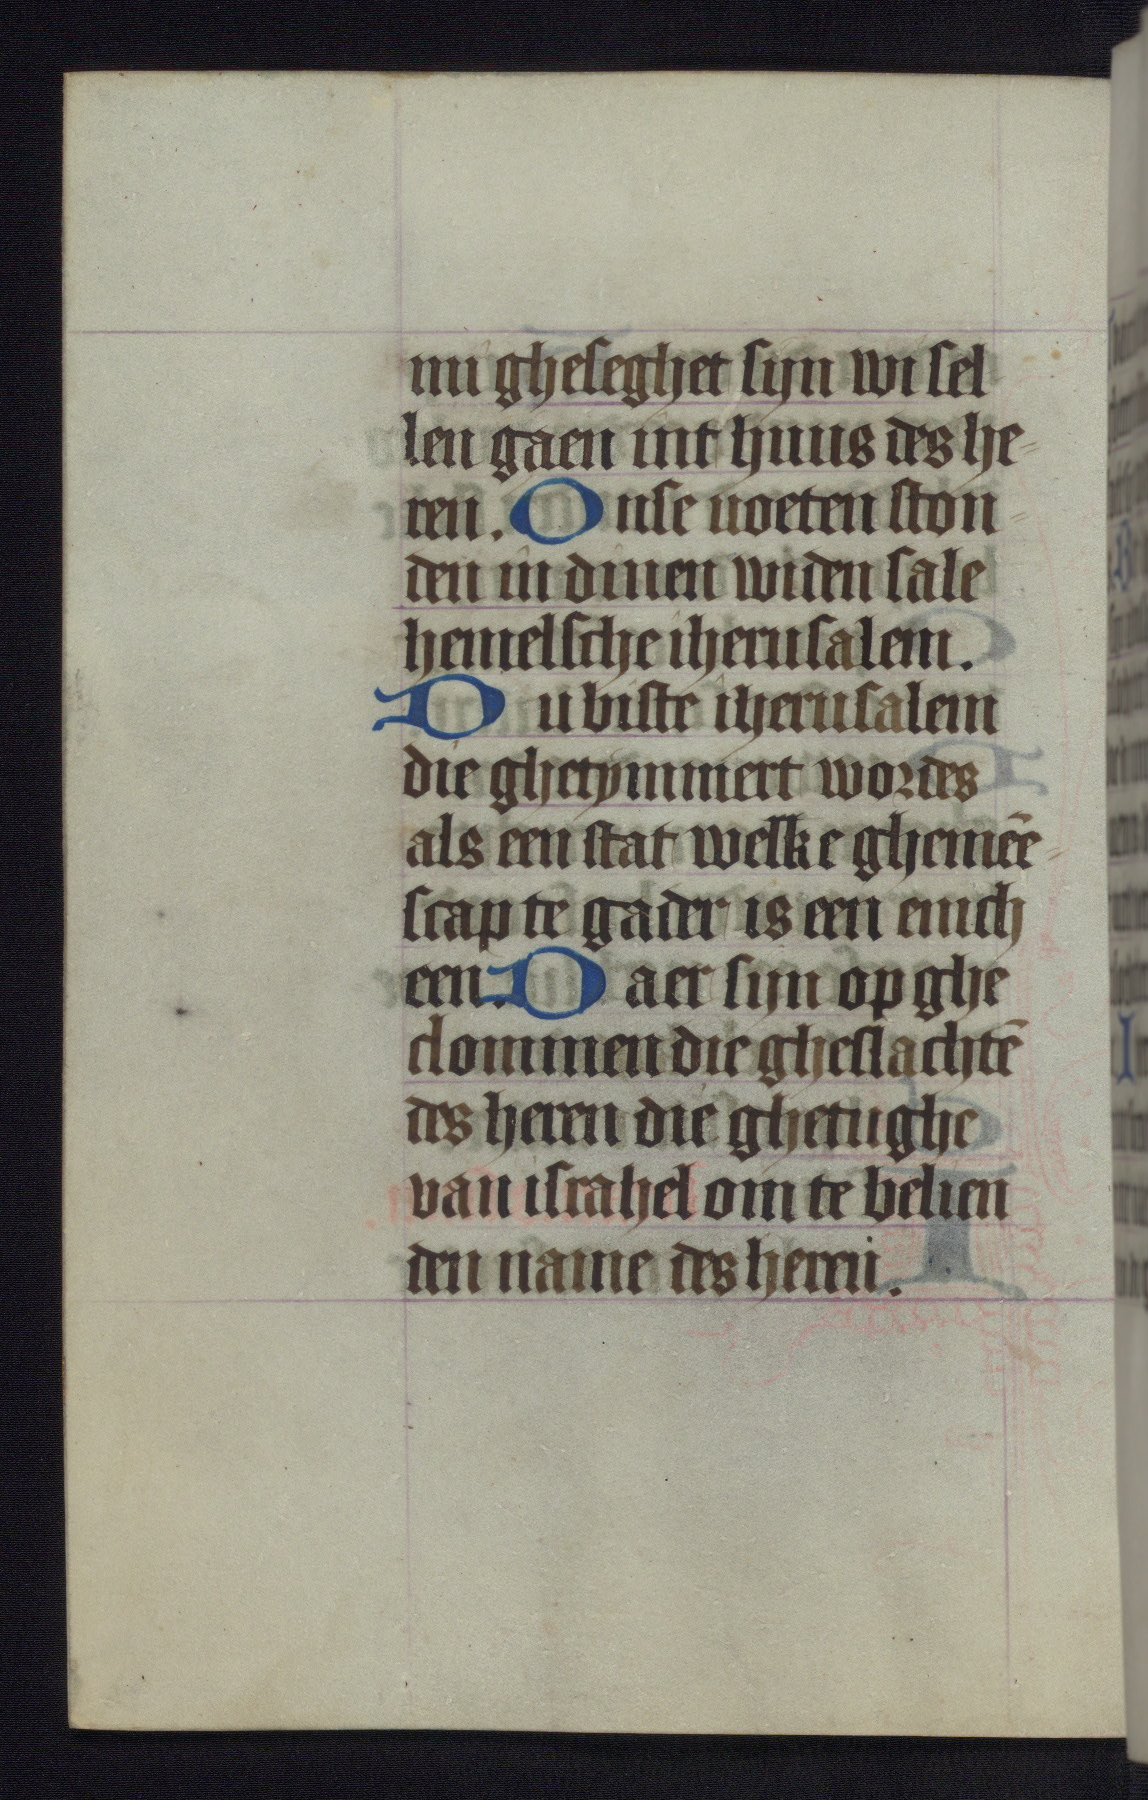 mi gheseghet sijn wi sel
len gaen int huus des he-
ren. Onse uoeten ston-
den in dinen widen sale
hemelsche iherusalem.
Du biste iherusalem
die ghetymmert wordes
als een stat welke ghemēe-
scap te gader is een enich
een. Daer sijn op ghe
clommen die gheslachtē
des heren die ghetughe
van israhel om te belien
den name des heren.